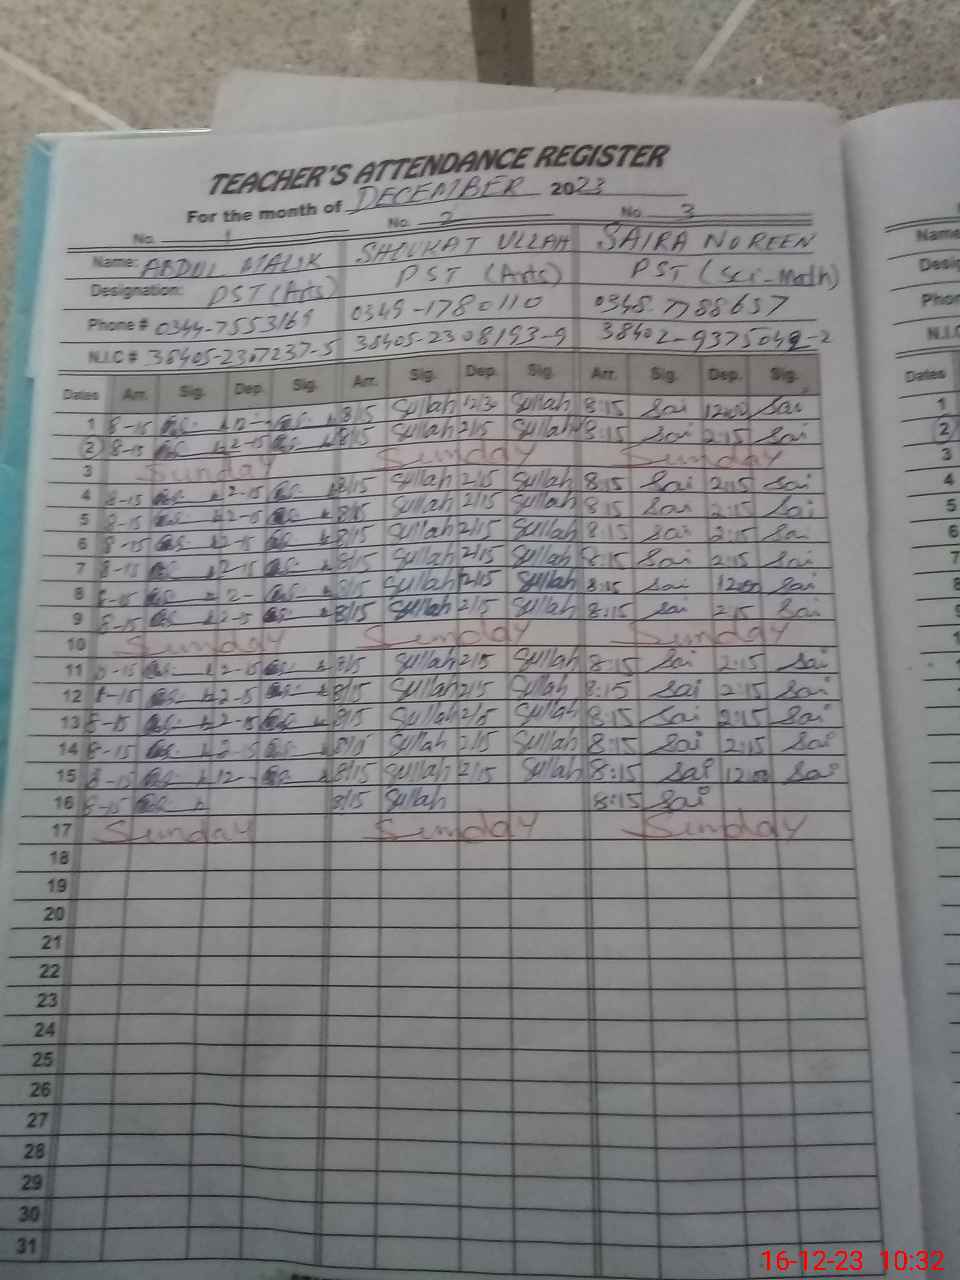 TEACHER'S ATTENDANCE REGISTER
For the month of DECEMBER 2023
No. 1 No. 2 No. 3
Name: ABDUL MALIK SHOUKAT ULLAH SAIRA NOREEN
Designation: PST (Arts) PST (Arts) PST (Sci-Math)
Phone # 0344-7553169 0349-1780110 0348-7788657
N.I.C # 38405-2367237-5 38405-2308193-9 38402-9375049-2
Dates Arr. Sig. Dep. Sig. Arr. Sig. Dep. Sig. Arr. Sig. Dep. Sig.
1 8-15 8/15 Sullah 12/30 Sullah 8:15 Sai 12:00 Sai
2 8-15 2-15 8/15 Sullah 2/15 Sullah 8:15 Sai 2:15 Sai
3 Sunday Sunday Sunday
4 8-15 2-15 8/15 Sullah 2/15 Sullah 8:15 Sai 2:15 Sai
5 8-15 2-15 8/15 Sullah 2/15 Sullah 8:15 Sai 2:15 Sai
6 8-15 2-15 8/15 Sullah 2/15 Sullah 8:15 Sai 2:15 Sai
7 8-15 2-15 8/15 Sullah 2/15 Sullah 8:15 Sai 2:15 Sai
8 8-15 8/15 Sullah 12/15 Sullah 8:15 Sai 12:00 Sai
9 8-15 2-15 8/15 Sullah 2/15 Sullah 8:15 Sai 2:15 Sai
10 Sunday Sunday Sunday
11 8-15 2-15 8/15 Sullah 2/15 Sullah 8:15 Sai 2:15 Sai
12 8-15 2-15 8/15 Sullah 2/15 Sullah 8:15 Sai 2:15 Sai
13 8-15 2-15 8/15 Sullah 2/15 Sullah 8:15 Sai 2:15 Sai
14 8-15 2-15 8/15 Sullah 2/15 Sullah 8:15 Sai 2:15 Sai
15 8-15 12- 8/15 Sullah 2/15 Sullah 8:15 Sai 12:00 Sai
16 8-15 8/15 Sullah 8:15 Sai
17 Sunday Sunday Sunday
18
19
20
21
22
23
24
25
26
27
28
29
30
31
Name
Desig
Phon
N.I.C
Dates
1
2
3
4
5
6
7
8
9
16-12-23 10:32